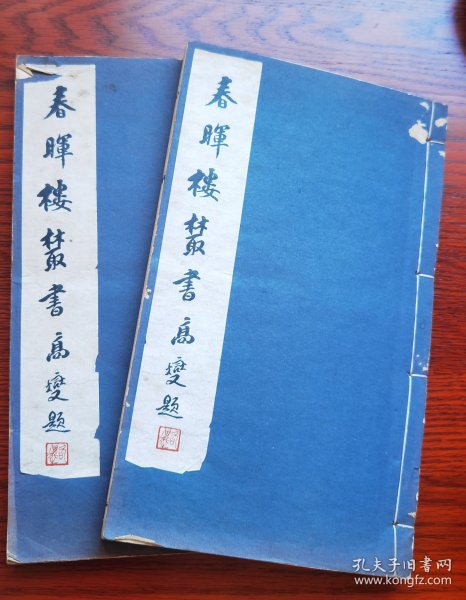 春暉楼叢書高燮題
春暉楼叢書高燮題
孔夫子旧书网
www.kongfz.com